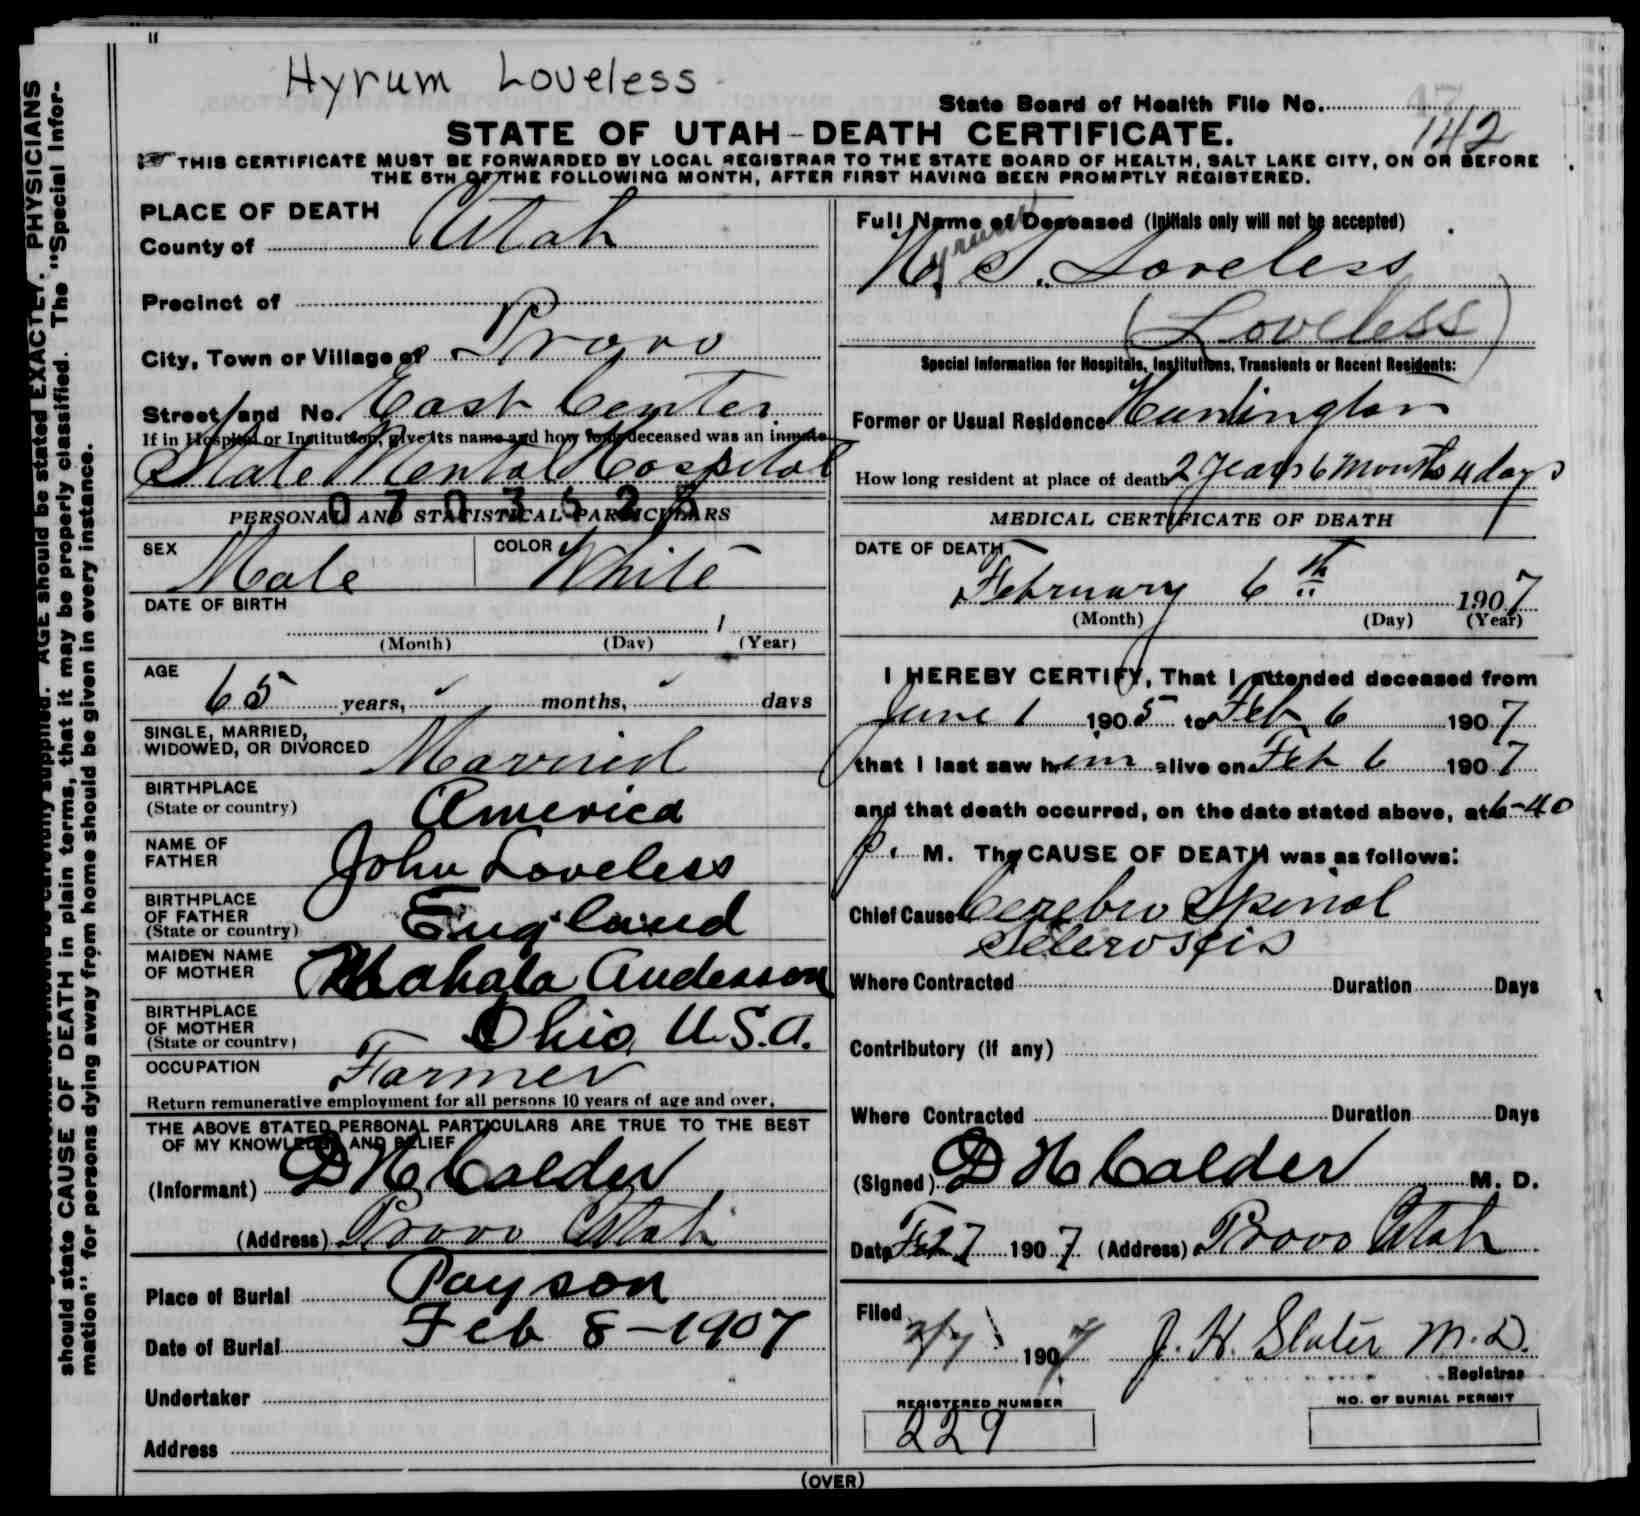 Hyrum Loveless
State Board of Health File No. 47
142
STATE OF UTAH-DEATH CERTIFICATE.
THIS CERTIFICATE MUST BE FORWARDED BY LOCAL REGISTRAR TO THE STATE BOARD OF HEALTH, SALT LAKE CITY, ON OR BEFORE
THE 5TH OF THE FOLLOWING MONTH, AFTER FIRST HAVING BEEN PROMPTLY REGISTERED.
PLACE OF DEATH
County of Utah
Precinct of
City, Town or Village of Provo
Street and No. East Center
If in Hospital or Institution, give its name and how long deceased was an inmate
State Mental Hospital
PERSONAL AND STATISTICAL PARTICULARS
SEX Male COLOR White
DATE OF BIRTH
1
(Month) (Day) (Year)
AGE
65 years, months, days
SINGLE, MARRIED,
WIDOWED, OR DIVORCED Married
BIRTHPLACE
(State or country) America
NAME OF
FATHER John Loveless
BIRTHPLACE
OF FATHER
(State or country) England
MAIDEN NAME
OF MOTHER Mahala Anderson
BIRTHPLACE
OF MOTHER
(State or country) Ohio, U.S.A.
OCCUPATION Farmer
Return remunerative employment for all persons 10 years of age and over.
THE ABOVE STATED PERSONAL PARTICULARS ARE TRUE TO THE BEST
OF MY KNOWLEDGE AND BELIEF
(Informant) D H Calder
(Address) Provo Utah
Place of Burial Payson
Date of Burial Feb 8-1907
Undertaker
Address
Full Name of Deceased (Initials only will not be accepted)
Hyrum
H. S. Loveless
(Loveless)
Special Information for Hospitals, Institutions, Transients or Recent Residents:
Former or Usual Residence Huntington
How long resident at place of death 2 years 6 months 4 days
MEDICAL CERTIFICATE OF DEATH
DATE OF DEATH
February 6th 1907
(Month) (Day) (Year)
I HEREBY CERTIFY, That I attended deceased from
June 1 1905 to Feb 6 1907
that I last saw him alive on Feb 6 1907
and that death occurred, on the date stated above, at 6-40
p. M. The CAUSE OF DEATH was as follows:
Chief Cause Cerebro Spinal
Sclerosis
Where Contracted Duration Days
Contributory (if any)
Where Contracted Duration Days
(Signed) D H Calder M. D.
Date Feb 7 1907 (Address) Provo Utah
Filed
2/7 1907 J. H. Slater M.D.
Registrar
REGISTERED NUMBER
229
NO. OF BURIAL PERMIT
(OVER)
AGE should be stated EXACTLY. PHYSICIANS
should state CAUSE OF DEATH in plain terms, that it may be properly classified. The "Special Infor-
mation" for persons dying away from home should be given in every instance.